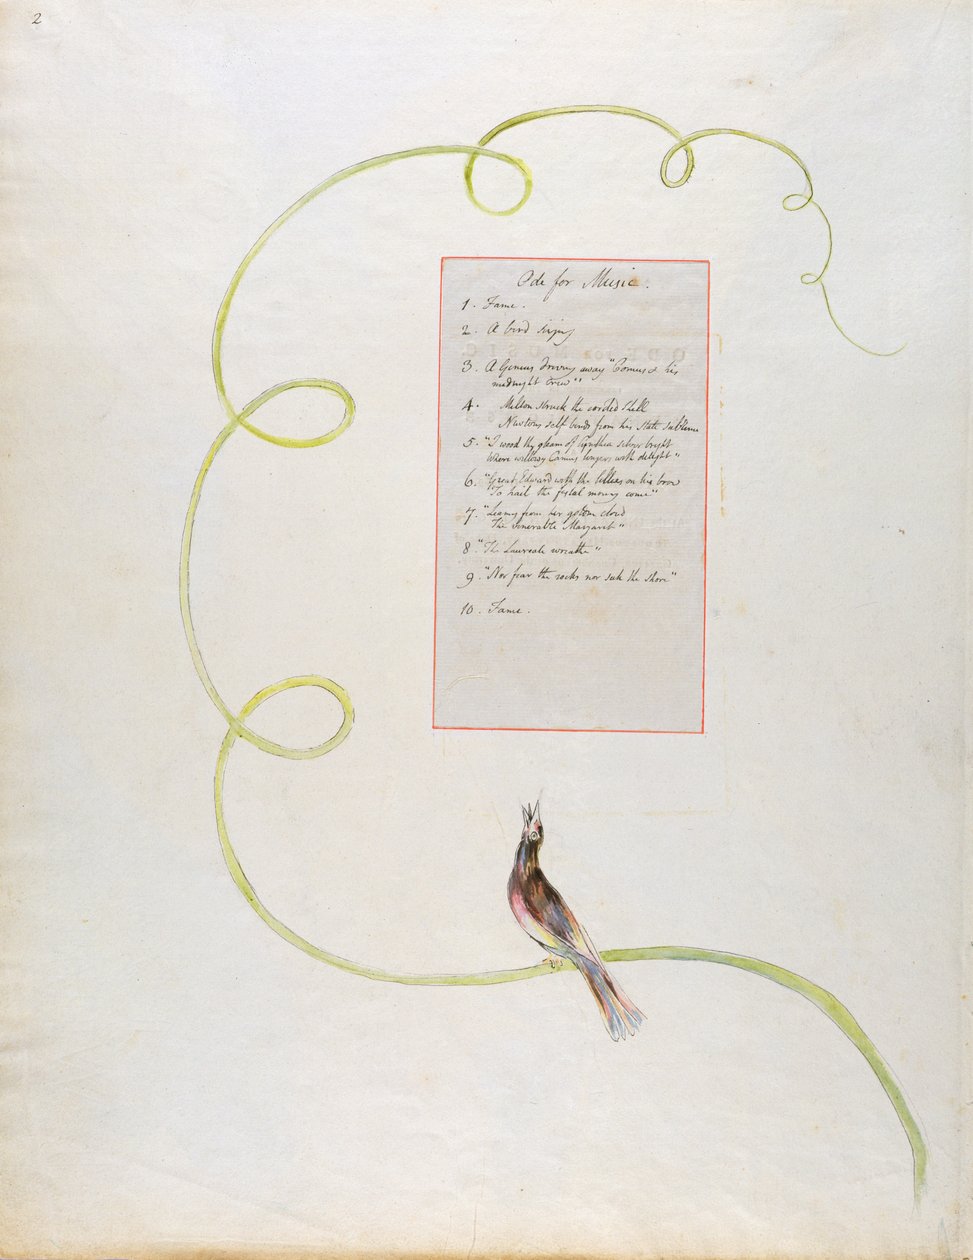 2
Ode for Music.
1. Fame.
2. A bird singing
3. A Genius driving away "Comus & his
midnight Crew"
4. Milton struck the corded Shell
Newtons self bends from his State sublime
5. "I wood thy gleam of Cynthia silver bright
Where willowy Camus lingers with delight"
6. "Great Edward with the lillies on his brow
To hail the festal morning come"
7. "Leaning from her golden cloud
The venerable Margaret"
8. "The Laureate wreathe"
9. "Nor fear the rocks nor seek the Shore"
10. Fame.